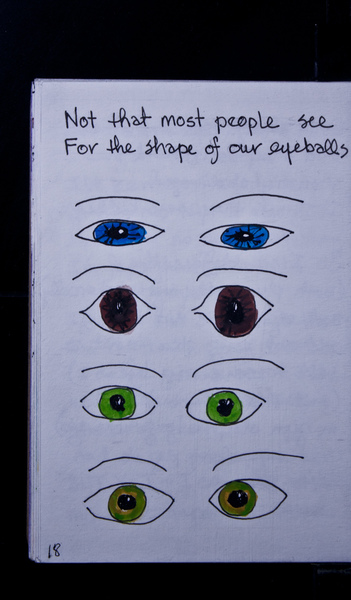 Not that most people see
For the shape of our eyeballs
18